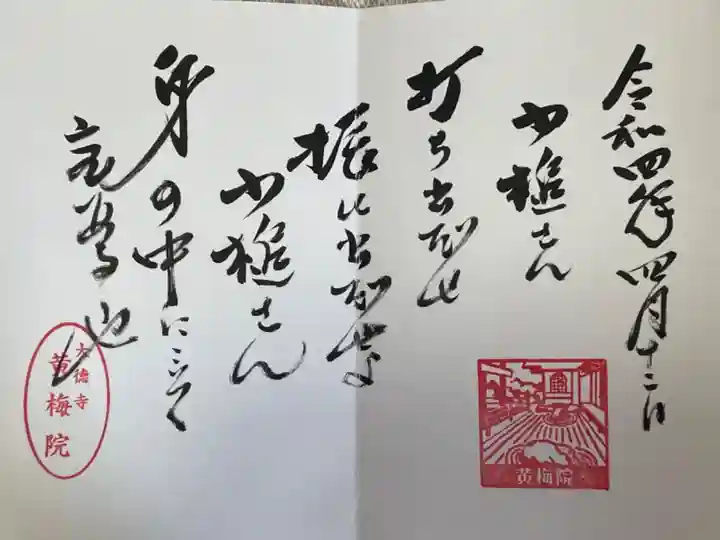 令和四年四月十二日
小槌さん
打ち出だせ
振い出だせよ
小槌さん
身の中に
也
黄梅院
大徳寺
黄梅院